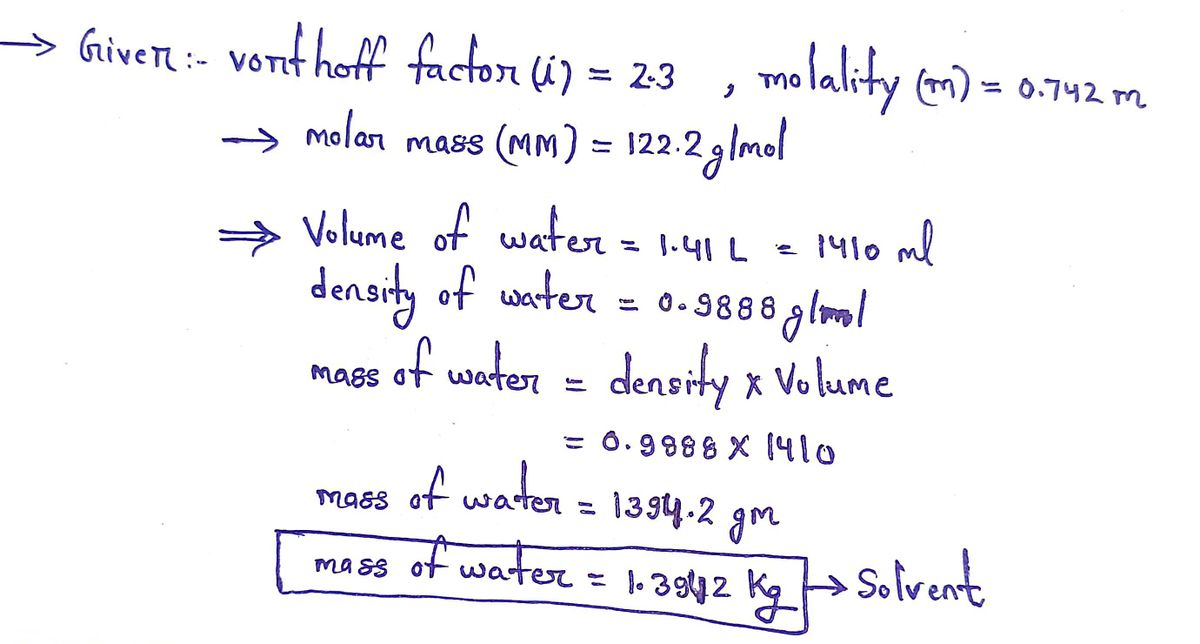 → Given :- vont hoff factor (i) = 2.3 , molality (m) = 0.742 m
→ molar mass (MM) = 122.2 g/mol
⇒ Volume of water = 1.41 L = 1410 ml
density of water = 0.9888 g/ml
mass of water = density x Volume
= 0.9888 X 1410
mass of water = 1394.2 gm
mass of water = 1.3942 Kg → Solvent